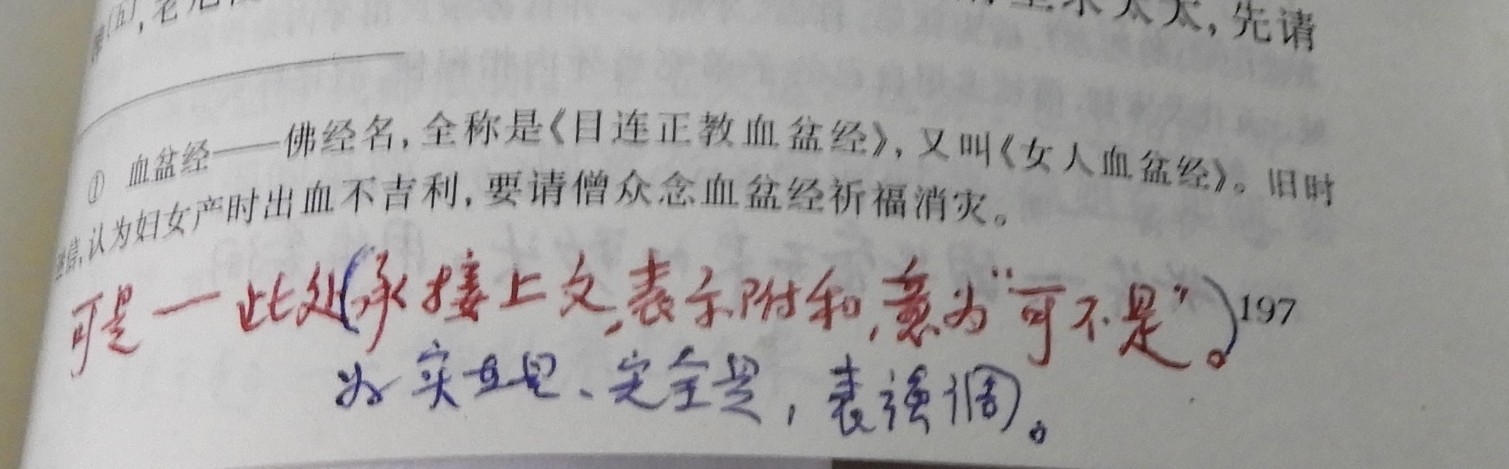 太太,先请
① 血盆经——佛经名,全称是《目连正教血盆经》,又叫《女人血盆经》。旧时
迷信,认为妇女产时出血不吉利,要请僧众念血盆经祈福消灾。
可是一此处(承接上文,表示附和,意为“可不是”。)197
为实在是、完全是,表强调。